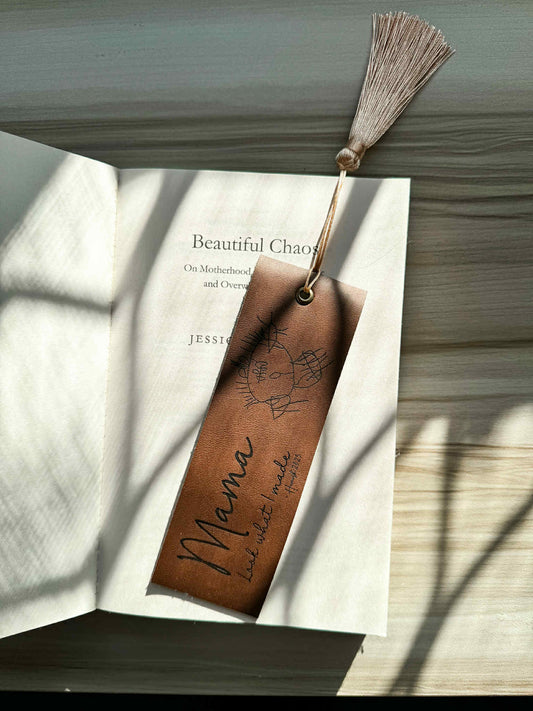 Beautiful Chaos
On Motherhood,
and Overw
JESSIC
Mama
Look what I made